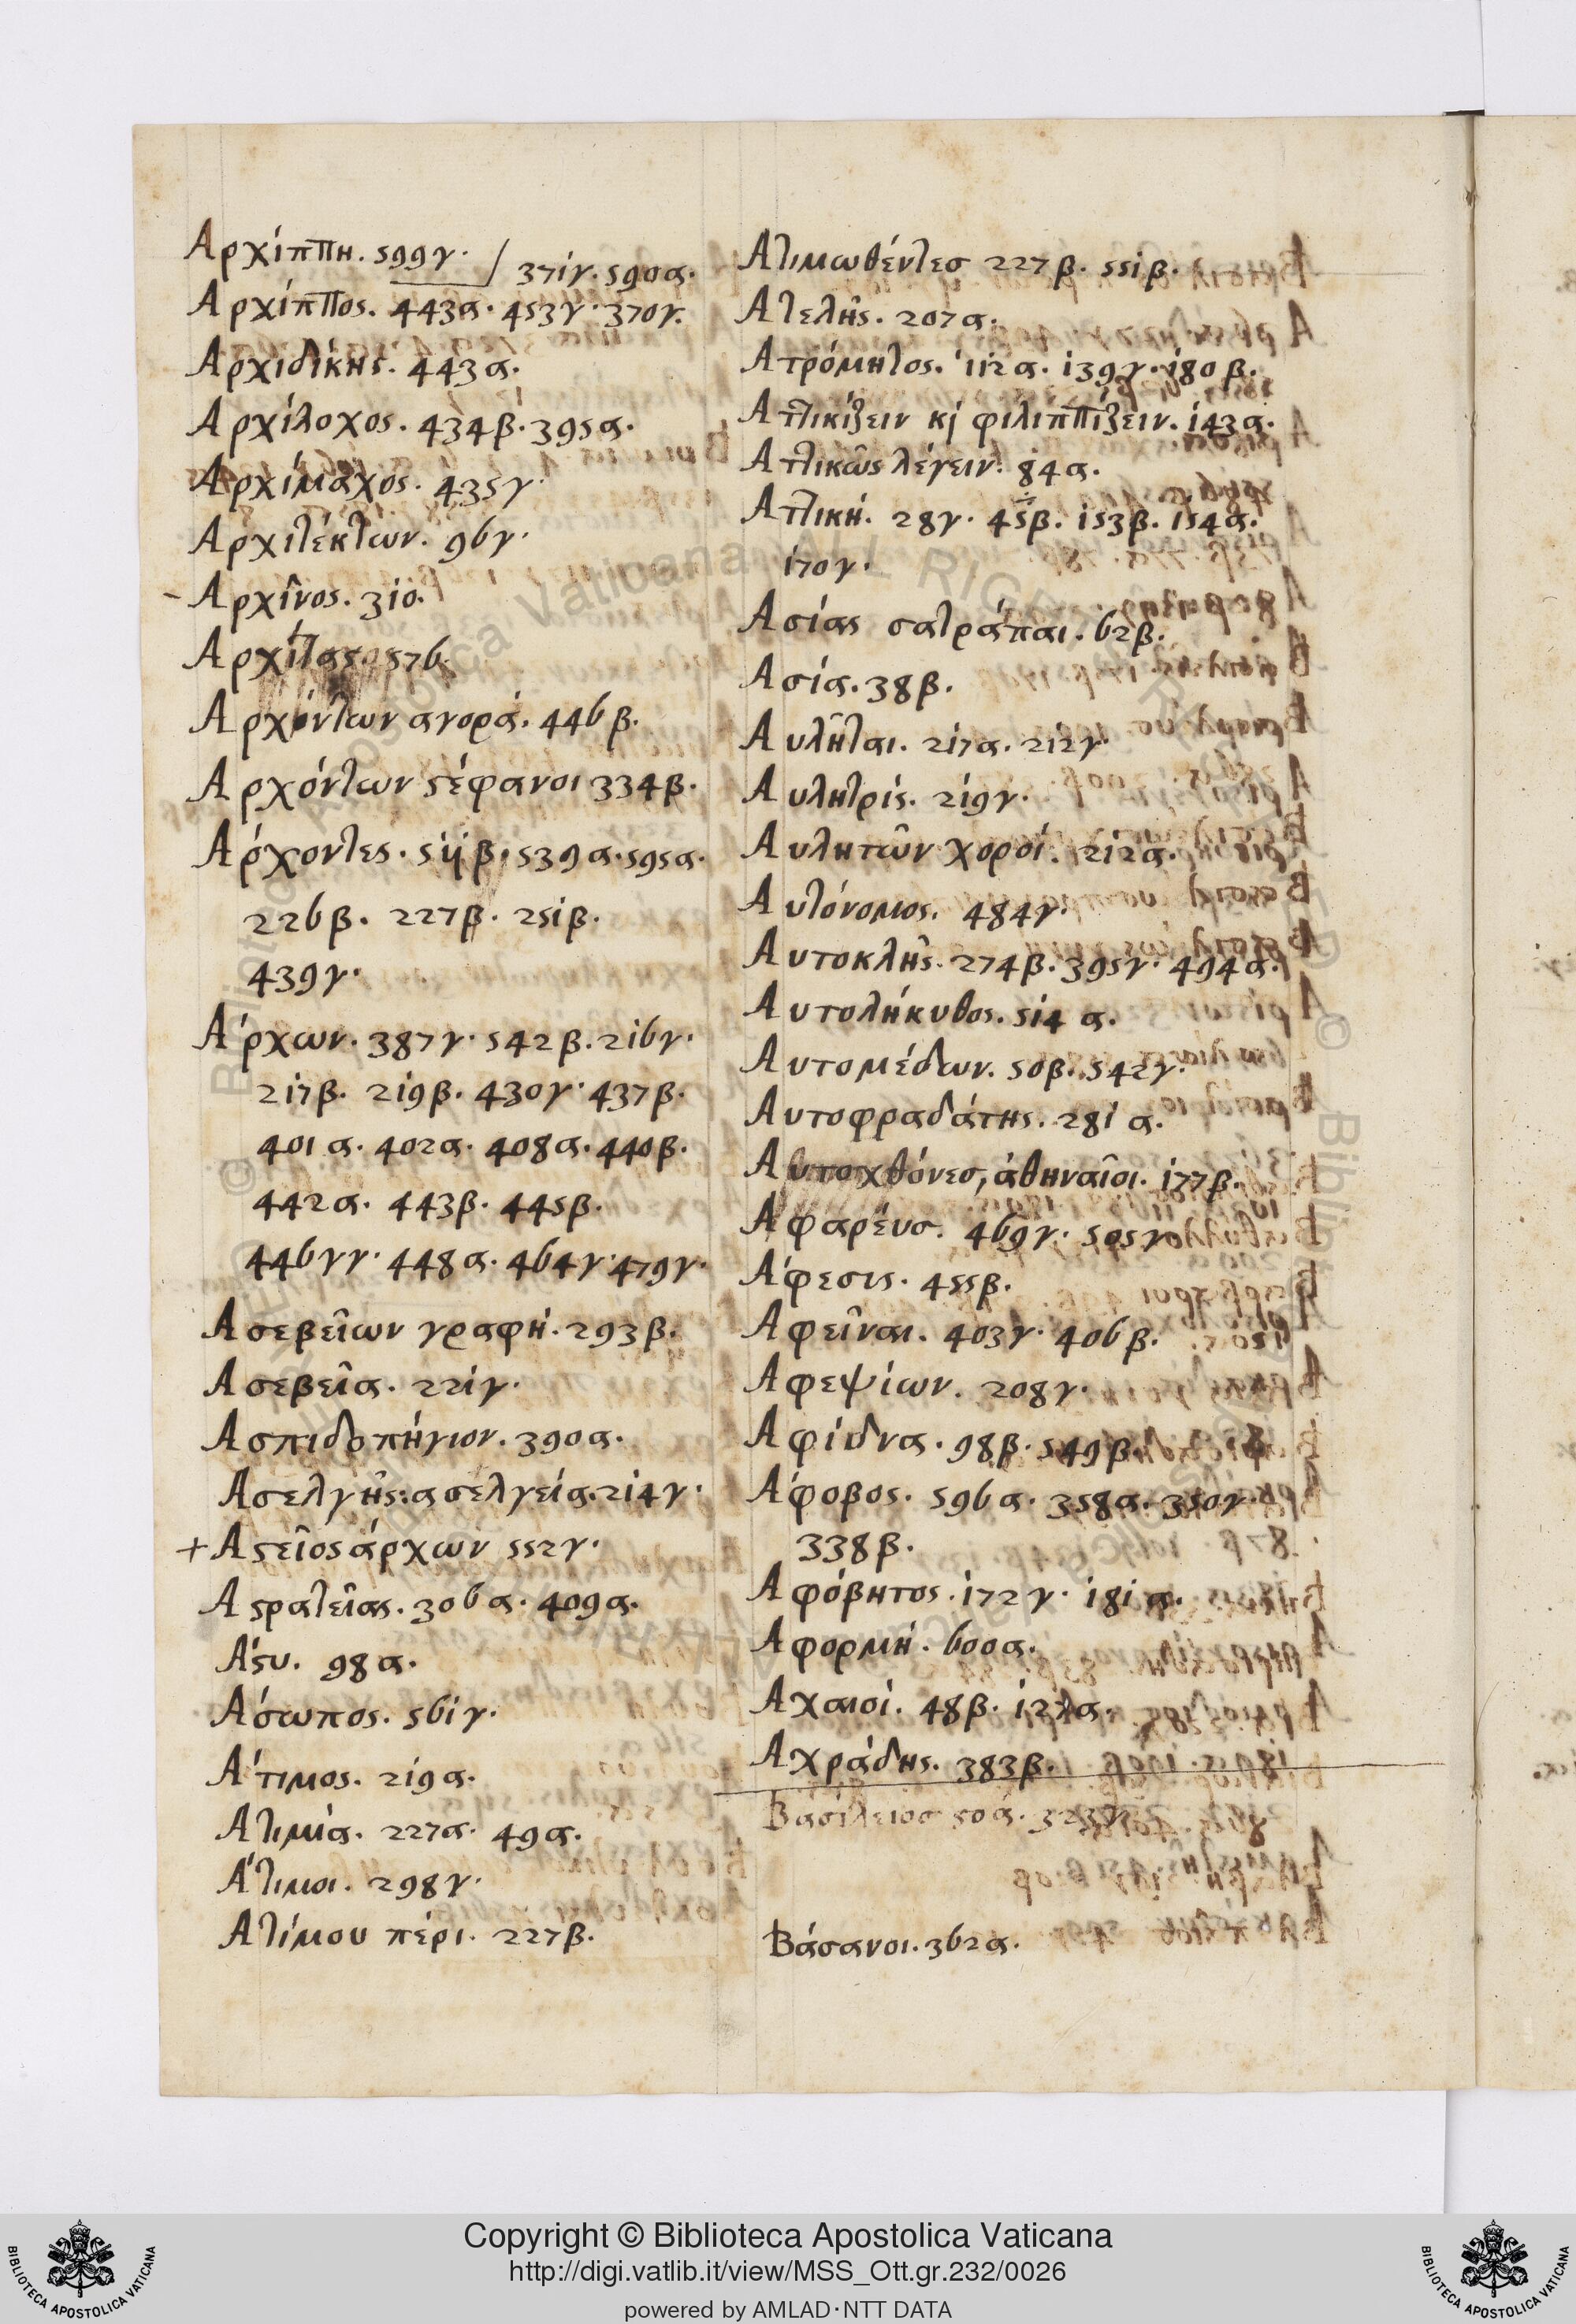 Αρχίππη. 599γ.
371γ. 590α.
Αρχίππος. 443α. 453γ. 370γ.
Αρχιδίκης. 443α.
Αρχίλοχος. 434β. 395α.
Αρχίμαχος. 435γ.
Αρχιτέκτων. 96γ.
- Αρχῖνος. 310.
Αρχίτας. 576.
Αρχόντων αγορά. 446β.
Αρχόντων ϛέφανοι 334β.
Αρχοντες. 511β. 539α. 595α.
226β. 227β. 251β.
439γ.
Αρχων. 387γ. 542β. 216γ.
217β. 219β. 430γ. 437β.
401α. 402α. 408α. 440β.
442α. 443β. 445β.
446γγ. 448α. 464γ. 479γ.
Ασεβεῖων γραφή. 293β.
Ασεβεῖα. 221γ.
Ασπιδοπήγιον. 390α.
Ασελγῆς: ασελγεία. 214γ.
+ Αϛεῖος άρχων 552γ.
Αϛρατεῖας. 306α. 409α.
Αϛυ. 98α.
Αόωπος. 561γ.
Ατιμος. 219α.
Ατιμία. 227α. 49α.
Ατιμοι. 298γ.
Ατίμου πέρι. 227β.
Ατιμωθέντεσ 227β. 551β.
Ατελῆς. 207α.
Ατρόμητος. 112α. 139γ. 180β.
Αττικίζειν κϳ φιλιππίζειν. 143α.
Αττικῶς λέγειν. 84α.
Αττική. 28γ. 45β. 153β. 154α.
170γ.
Ασίας σατράπαι. 62β.
Ασία. 38β.
Αυλῆται. 217α. 212γ.
Αυλητρίς. 219γ.
Αυλητῶν χοροί. 212α.
Αυτόνομος. 484γ.
Αυτοκλῆς. 274β. 395γ. 494α.
Αυτολήκυθος. 514α.
Αυτομέδων. 50β. 542γ.
Αυτοφραδάτης. 281α.
Αυτοχθόνεσ, ἀθηναῖοι. 177β.
Αφαρέυσ. 469γ. 505γ
Αφεσις. 455β.
Αφεῖναι. 403γ. 406β.
Αφεψίων. 208γ.
Αφίδνα. 98β. 549β.
Αφοβος. 596α. 358α. 350γ.
338β.
Αφόβητος. 172γ. 181α.
Αφορμή. 600α.
Αχαιοί. 48β. 127α.
Αχράδης. 383β.
Βασίλειοσ 50α. 323γ.
Βάσανοι. 362α.
Copyright © Biblioteca Apostolica Vaticana
http://digi.vatlib.it/view/MSS_Ott.gr.232/0026
powered by AMLAD·NTT DATA
BIBLIOTECA APOSTOLICA VATICANA
BIBLIOTECA APOSTOLICA VATICANA